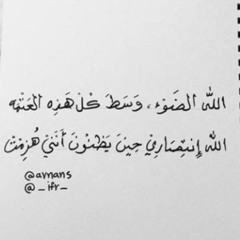 الله الضَوْء، وَسَطَ كُلْ هَذِه العَتْمَه
الله إنتِصَارِي حِينَ يَظنُونَ أنَنِي هُزِمْتْ
@avnans
@_ifr_